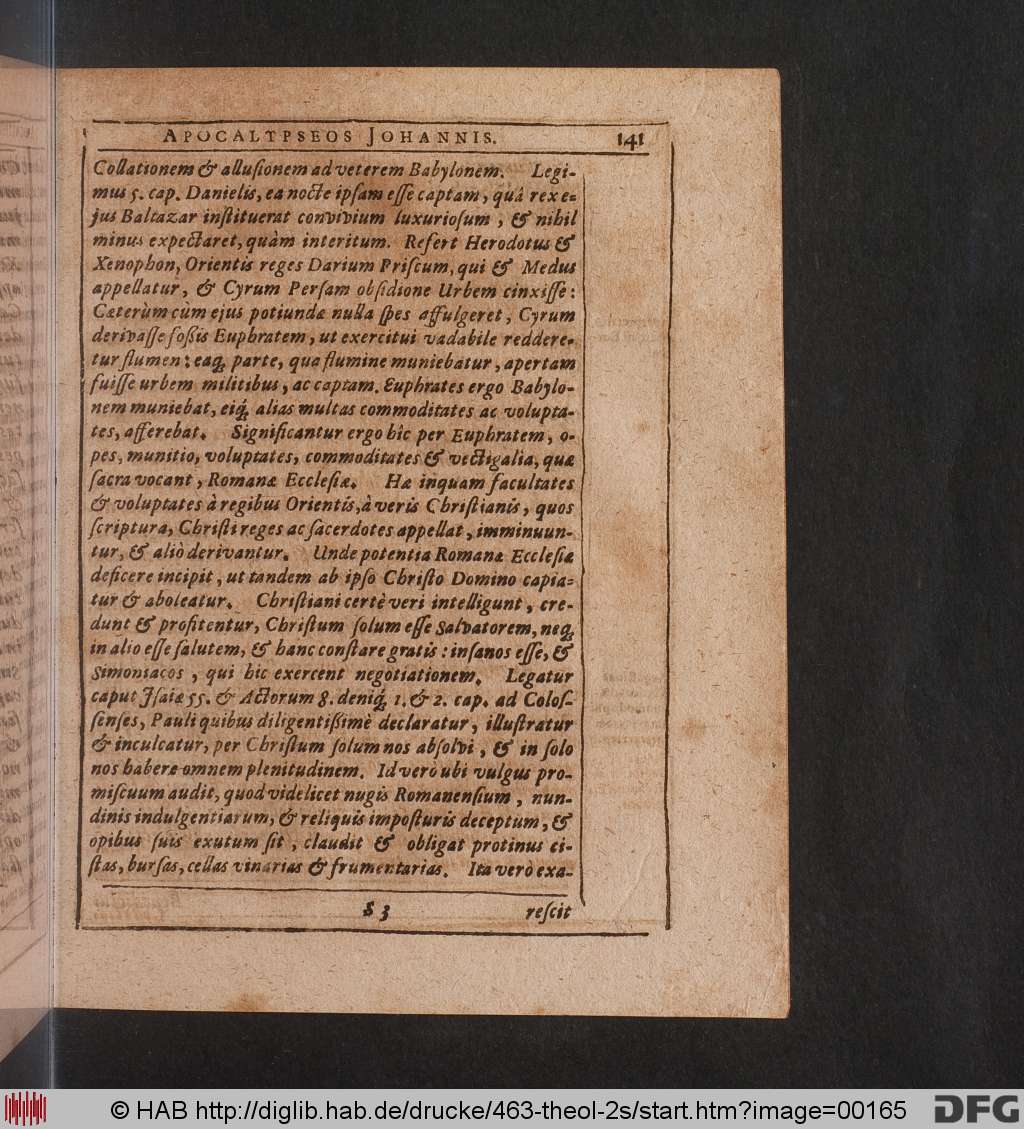 APOCALYPSEOS JOHANNIS. 141
Collationem & alluſionem ad veterem Babylonem. Legi-
mus 5. cap. Danielis, ea nocte ipſam eſſe captam, quâ rex e-
jus Baltazar inſtituerat convivium luxurioſum, & nihil
minus expectaret, quàm interitum. Refert Herodotus &
Xenophon, Orientis reges Darium Priſcum, qui & Medus
appellatur, & Cyrum Perſam obſidione Urbem cinxiſſe:
Cæterùm cùm ejus potiundæ nulla ſpes affulgeret, Cyrum
derivaſſe foßis Euphratem, ut exercitui vadabile reddere-
tur flumen: eaq́; parte, qua flumine muniebatur, apertam
fuiſſe urbem militibus, ac captam. Euphrates ergo Babylo-
nem muniebat, eiq́; alias multas commoditates ac volupta-
tes, afferebat. Significantur ergo hîc per Euphratem, o-
pes, munitio, voluptates, commoditates & vectigalia, quæ
ſacra vocant, Romanæ Eccleſiæ. Hæ inquam facultates
& voluptates à regibus Orientis, à veris Chriſtianis, quos
ſcriptura, Chriſti reges ac ſacerdotes appellat, imminuun-
tur, & aliò derivantur. Unde potentia Romanæ Eccleſiæ
deficere incipit, ut tandem ab ipſo Chriſto Domino capia-
tur & aboleatur. Chriſtiani certè veri intelligunt, cre-
dunt & profitentur, Chriſtum ſolum eſſe Salvatorem, neq́;
in alio eſſe ſalutem, & hanc conſtare gratis: inſanos eſſe, &
Simoniacos, qui hic exercent negotiationem. Legatur
caput Jſaiæ 55. & Actorum 8. deniq́; 1. & 2. cap. ad Coloſ-
ſenſes, Pauli quibus diligentißimè declaratur, illuſtratur
& inculcatur, per Chriſtum ſolum nos abſolvi, & in ſolo
nos habere omnem plenitudinem. Id verò ubi vulgus pro-
miſcuum audit, quod videlicet nugis Romanenſium, nun-
dinis indulgentiarum, & reliquis impoſturis deceptum, &
opibus ſuis exutum ſit, claudit & obligat protinus ci-
ſtas, burſas, cellas vinarias & frumentarias. Ita verò exa-
S 3 reſcit
© HAB http://diglib.hab.de/drucke/463-theol-2s/start.htm?image=00165
DFG